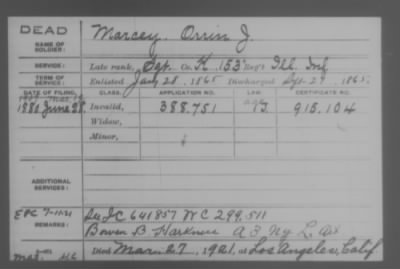 DEAD
NAME OF SOLDIER:
Marcey, Orrin J.
SERVICE:
Late rank, Sgt. Co. K, 153 Reg't Ill. Inf
TERM OF SERVICE:
Enlisted Jany 28, 1865 Discharged Sept 27, 1865.
DATE OF FILING.
CLASS.
APPLICATION NO.
LAW.
CERTIFICATE NO.
1880 June 28.
Invalid,
388.751
age
915.104
Widow,
Minor,
ADDITIONAL SERVICES:
REMARKS:
7-11-21
See IC 641857 WC 299,511
Bowen B A 3 Ny L. Art
Died Mar. 27, 1921, at Los Angeles, Calif